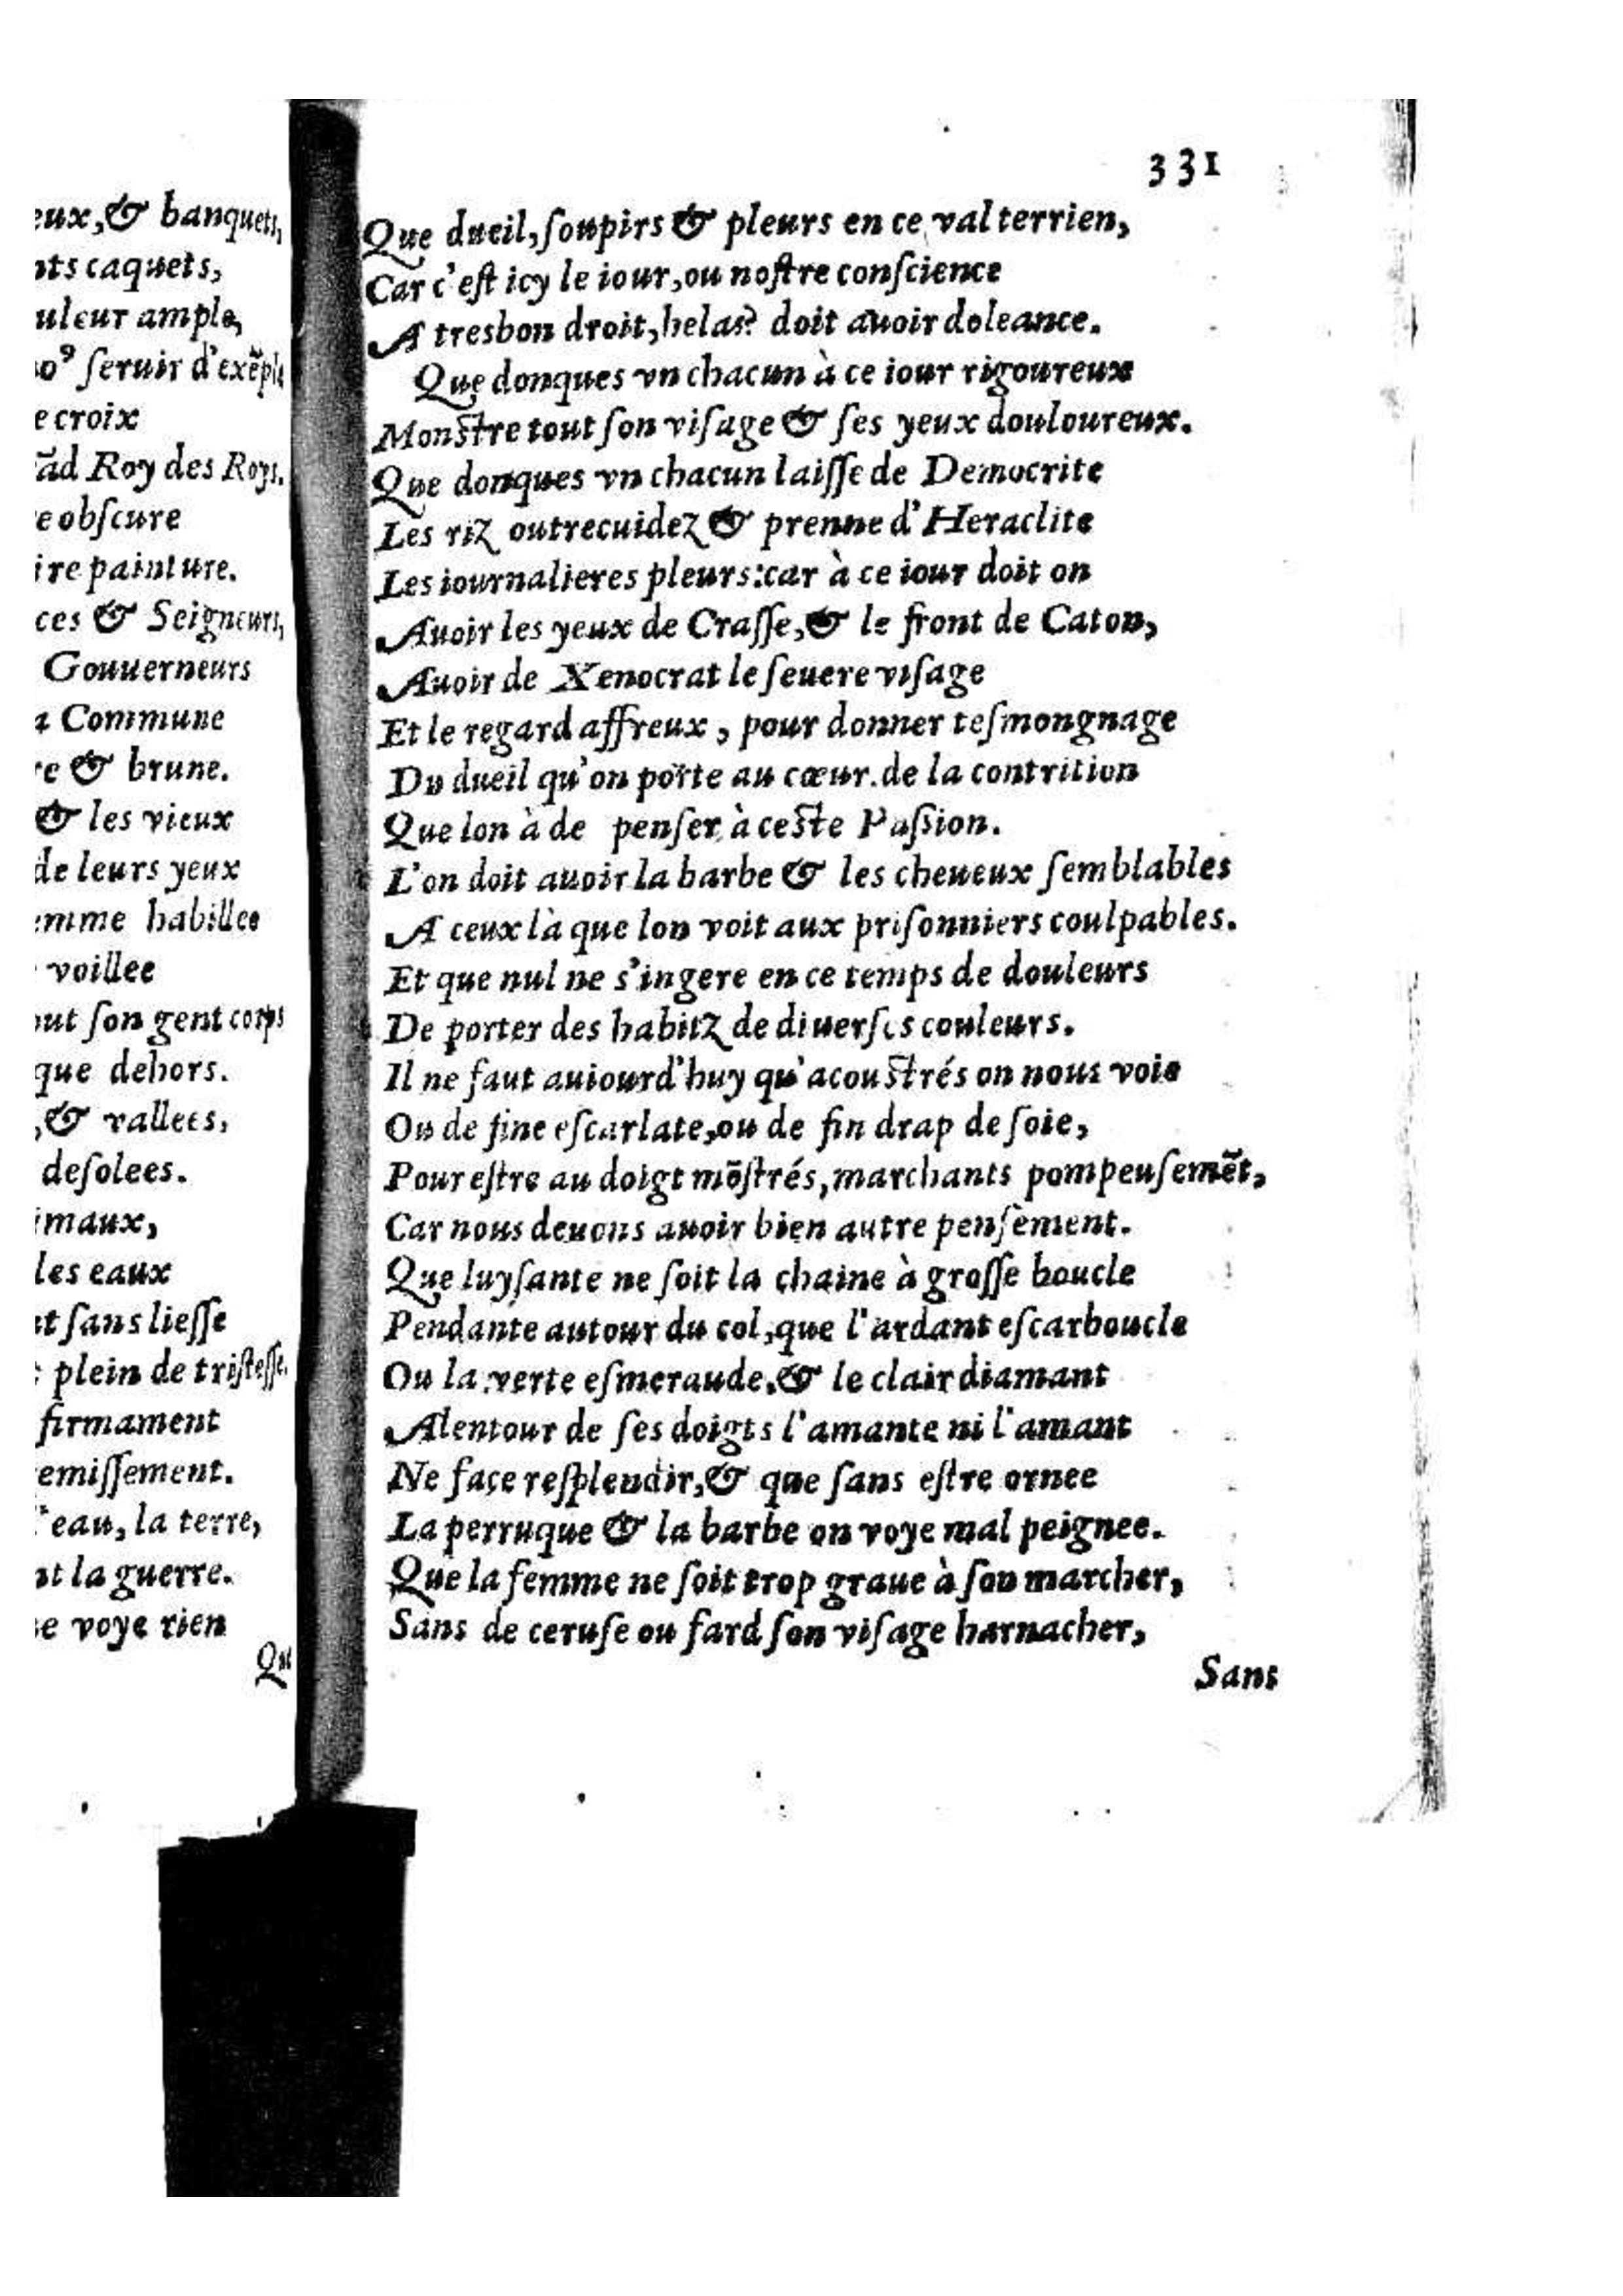 eux, & banquets,
nts caquets,
uleur ample,
ſeruir d'exẽple
e croix
ãd Roy des Roys.
e obſcure
ire painture.
ces & Seigneurs,
Gouuerneurs
a Commune
re & brune.
& les vieux
de leurs yeux
emme habillee
voillee
out ſon gent corps
que dehors.
, & vallees,
deſolees.
imaux,
les eaux
nt ſans lieſſe
plein de triſteſſe.
firmament
emiſſement.
l'eau, la terre,
nt la guerre.
ne voye rien
Que
331
Que dueil, ſoupirs & pleurs en ce val terrien,
Car c'eſt icy le iour, ou noſtre conſcience
A tresbon droit, helas? doit auoir doleance.
Que donques vn chacun à ce iour rigoureux
Monſtre tout ſon viſage & ſes yeux douloureux.
Que donques vn chacun laiſſe de Democrite
Les riz outrecuidez & prenne d'Heraclite
Les iournalieres pleurs: car à ce iour doit on
Auoir les yeux de Craſſe, & le front de Caton,
Auoir de Xenocrat le ſeuere viſage
Et le regard affreux, pour donner teſmongnage
Du dueil qu'on porte au cœur. de la contrition
Que lon à de penſer à ceſte Paſsion.
L'on doit auoir la barbe & les cheueux ſemblables
A ceux là que lon voit aux priſonniers coulpables.
Et que nul ne s'ingere en ce temps de douleurs
De porter des habitz de diuerſes couleurs.
Il ne faut auiourd'huy qu'acouſtrés on nous voie
Ou de fine eſcarlate, ou de fin drap de ſoie,
Pour eſtre au doigt mõſtrés, marchants pompeuſemẽt,
Car nous deuons auoir bien autre penſement.
Que luyſante ne ſoit la chaine à groſſe boucle
Pendante autour du col, que l'ardant eſcarboucle
Ou la verte eſmeraude, & le clair diamant
Alentour de ſes doigts l'amante ni l'amant
Ne face reſplendir, & que ſans eſtre ornee
La perruque & la barbe on voye mal peignee.
Que la femme ne ſoit trop graue à ſon marcher,
Sans de ceruſe ou fard ſon viſage harnacher,
Sans